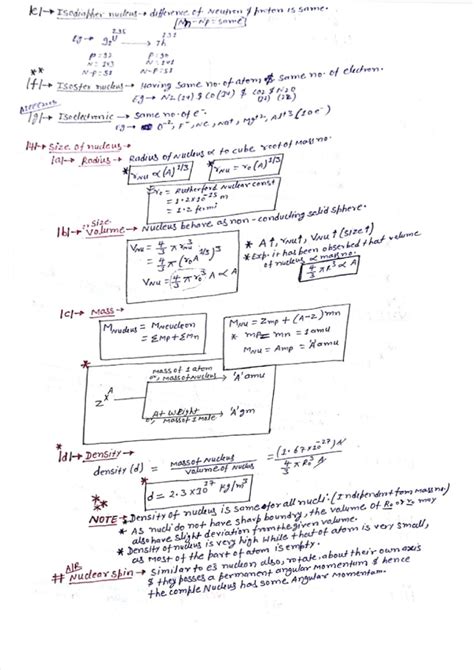 |e|→ Isodiapher nucleus → difference of Neutron & proton is same.
[Nn - Np = same]
Eg → 92U235 → 90Th231
P = 92 P = 90
N = 143 N = 141
N-P = 51 N-P = 51
** |f|→ Isoster nucleus → Having same no. of atom, & same no. of electron.
Eg → N2 (14) & CO (14) & CO2 & N2O
(22) (22)
|g|→ Isoelectronic → same no. of e⁻.
Eg → O⁻², F⁻, Ne, Na⁺, Mg⁺², Al⁺³ (10e⁻)
|4|→ Size of nucleus →
|a|→ Radius → Radius of Nucleus ∝ to cube root of Mass no.
* rNU ∝ (A)^1/3 * rNU = r0 (A)^1/3
r0 = Rutherford Nuclear const
= 1.2×10⁻¹⁵ m
= 1.2 fermi
|b|→ Size. Volume → Nucleus behave as non-conducting solid sphere.
VNU = 4/3 π rNU³
= 4/3 π (r0 A^1/3)³
VNU = 4/3 π r0³ A ∝ A
* A↑, rNU↑, VNU↑ (size↑)
* Exp. it has been observed that volume
of nucleus ∝ mass no.
4/3 πr³ ∝ A
|c|→ Mass →
MNucleus = MNeucleon
= ΣMp + ΣMn
MNU = Zmp + (A-Z) mn
* mp = mn = 1 amu
MNU = Amp = 'A' amu
* ZXA
Mass of 1 atom or, Mass of Nucleus → 'A' amu
At Weight or, Mass of 1 Mole → 'A' gm
* |d|→ Density →
density (d) = Mass of Nucleus / Volume of Nucleus = (1.67×10⁻²⁷) A / 4/3 π R0³ A
* d = 2.3 × 10¹⁷ kg/m³
NOTE → Density of nucleus is same for all nucli. (Independent from Mass no.)
* As nucli do not have sharp boundry, the volume of R0 or r0 may
also have slight deviation from the given volume.
* Density of nucleus is very high while that of atom is very small,
as most of the part of atom is empty.
## Nuclear spin → Similar to e⁻s nucleon also, rotate about their own axis
& they posses a permanent angular momentum & hence
the comple Nucleus has some Angular Momentum.